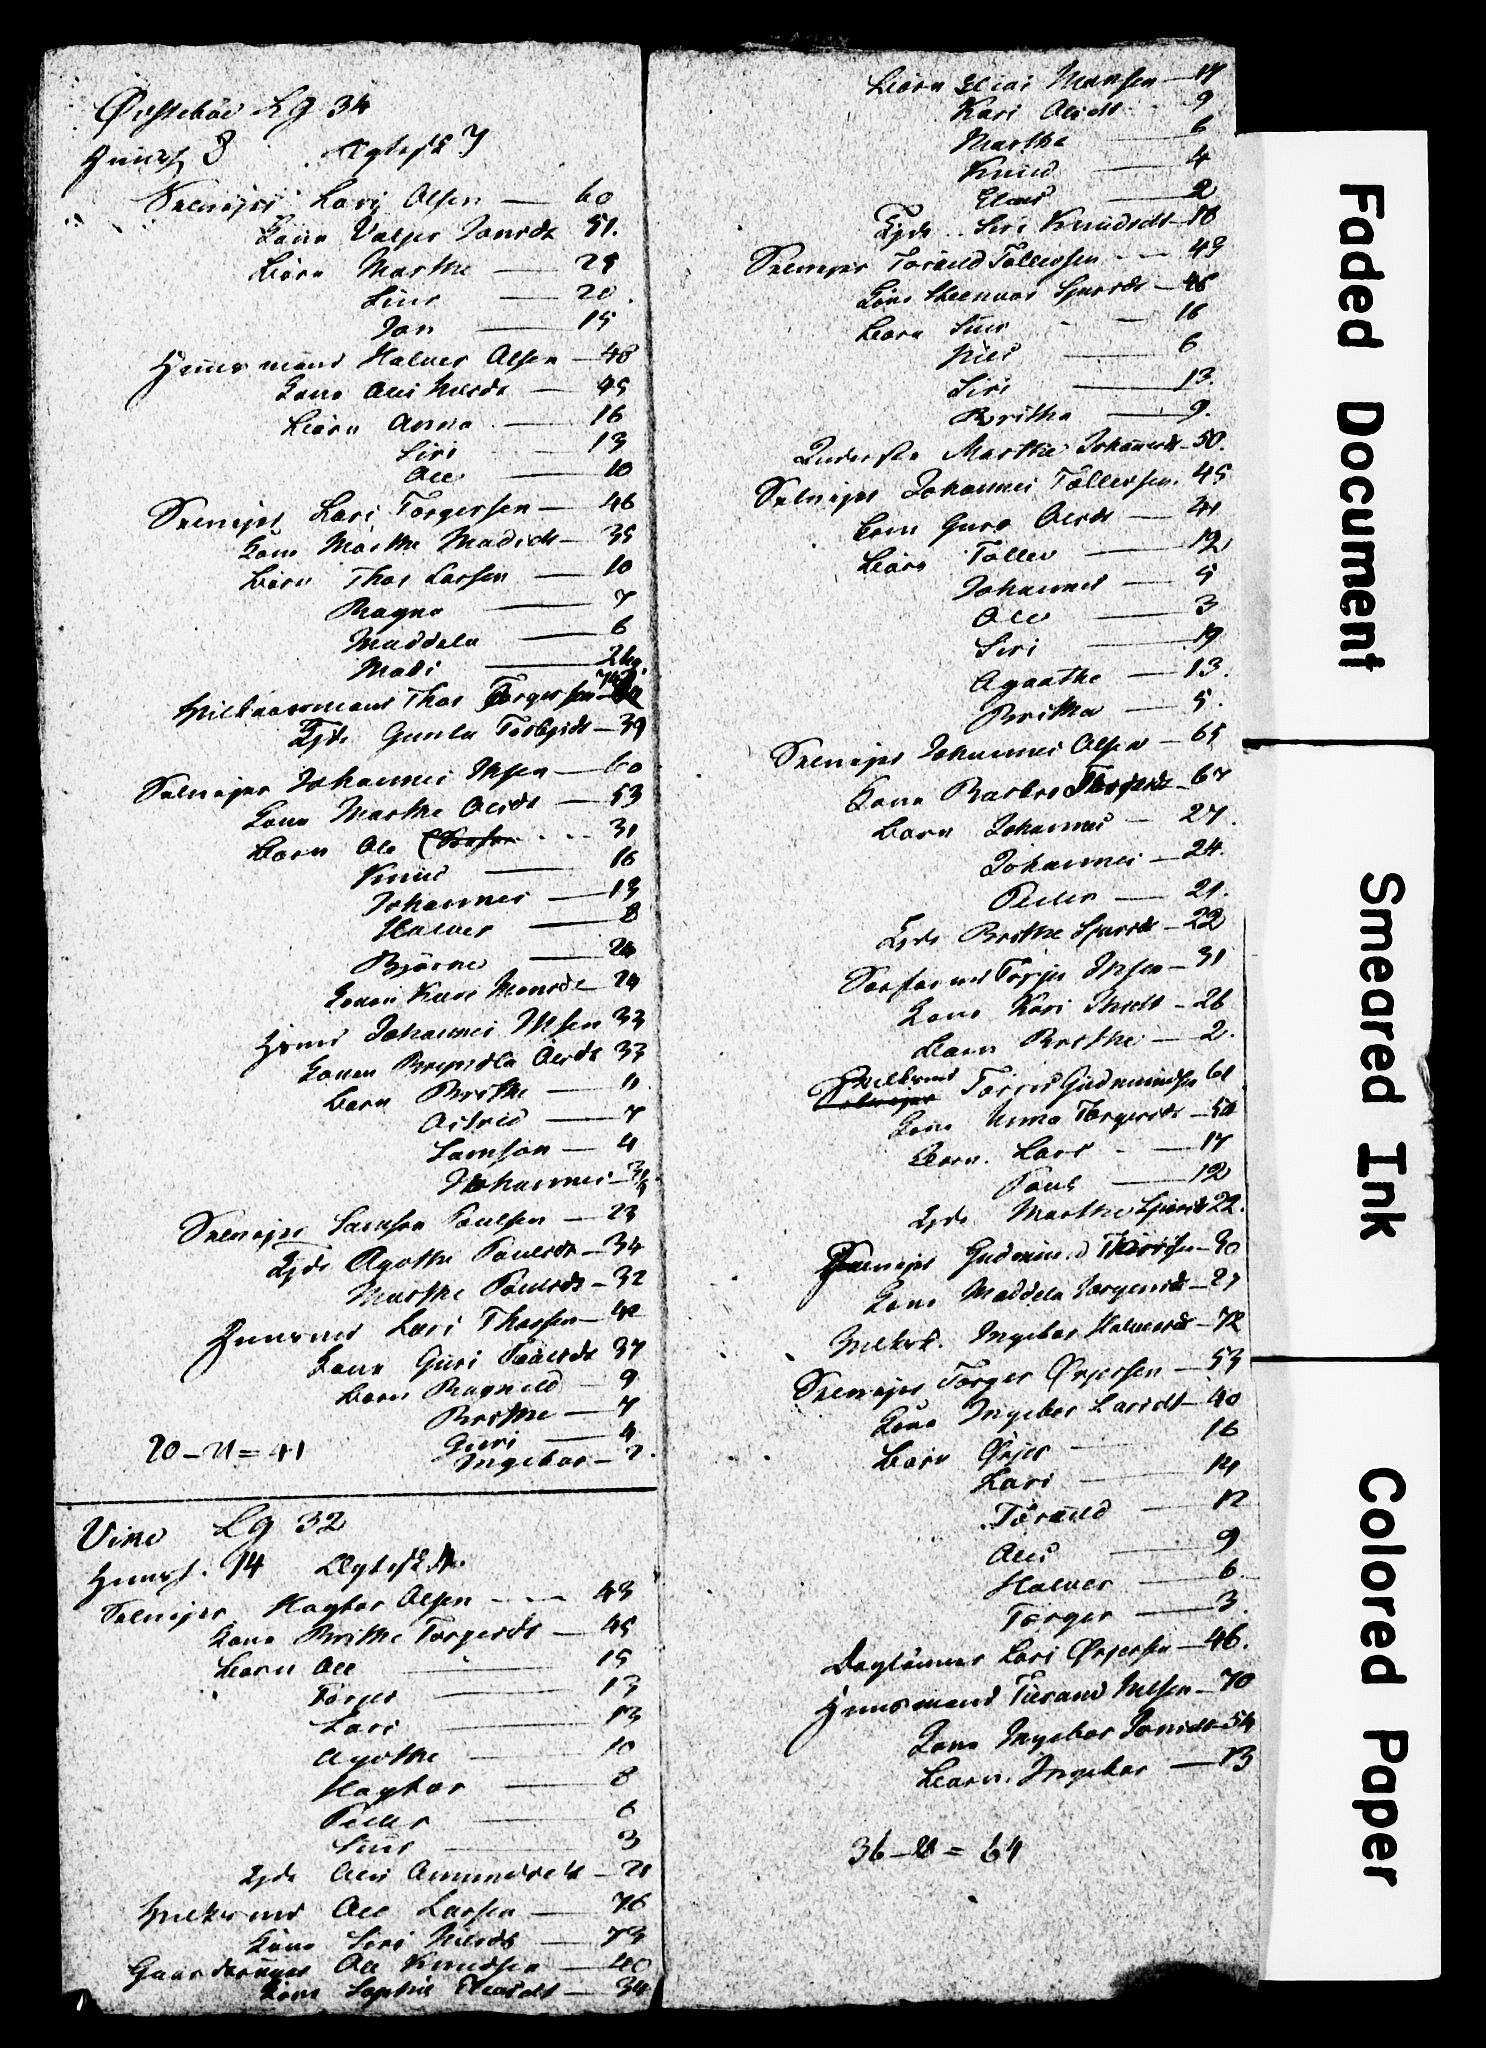 Øvstebøe Lg 34
Huusf 8 Ægtesk 7
Selvejer Lars Olsen — 60
Kone Valger Jonsdt 51.
Børn Marthe — 25
Siur — 20
Jon — 15
Huusmand Halvor Olsen — 48
Kone Ales Nilsdt — 45
Børn Anna — 16
Siri 13
Ole — 10
Selvejer Lars Torgersen — 46
Kone Marthe Madsdt — 35
Børn Thor Larsen — 10
Magna — 7
Maddela — 6
Mads —
Thor Torgersen —
Tjde Gunla — 39
Selvejer Johannes Ipsen — 60
Kone Marthe Olesdt — 53
Børn Ole - - - 31
Knud — 16
Johannes — 13
Halvor — 8
Bjørne — 24
Konen Kari Monsdt — 24
Huusmd Johannes Ipsen 33
Konen Brynilla Olesdt 33
Børn Brithe — 11
Astrid — 7
Samson — 4
Johannes —
Selvejer Samson Povelsen — 23
Tjde Agothe Povelsdt — 34
Marthe Povelsdt — 32
Huusmd Lars Thorsen — 42
Kone Guri Povelsdt 37
Børn Ragnild — 9
Brithe — 7
Guri — 4
Ingebor — 2.
20 — 21 = 41
Vike Lg 32
Huusf. 14 Ægtesk
Selvejer Hagtor Olsen - - - 43
Kone Brithe Torgersdt — 45
Børn Ole — 15
Tørres — 13
Lars — 13
Agothe — 10
Hagtor — 8
Peder — 6
Siur — 3
Tjde Ales Amundsdt — 21
Ole Larsen — 76
Kone Siri Nilsdt — 73
Ole Knudsen — 40
Kone Sophie — 34
Børn Elias Monsen — 14
Kari Olesdt - - 9
Marthe — 6
Knud — 4
Elias — 2
Tjde Siri Knudsdt — 18
Selvejer Torkild Tollevsen - - - 49
Kone Steenvor Sjursdt — 46
Børn Siur - - 16
Nils — 6
Siri — 13.
Britha — 9.
Inderste Marthe Johannesdt — 50.
Selvejer Johannes Tollevsen. 45
Kone Guro Olesdt — 41
Børn Tollev — 12
Johannes — 5
Ole — 3
Siri — 19
Agaathe — 13.
Britha — 5.
Selvejer Johannes Olsen — 65
Kone Barbro — 67
Børn Johannes — 27.
Johannes — 24.
Peder — 21.
Tjde Brithe Sjursdt — 22
Torger Ipsen — 31
Kone Kari — 26
Børn Brithe — 2.
Gudmundsen 61
Kone Anna Torgersdt — 54
Børn. Lars - — 17
Povel — 12
Tjde Marthe Sjursdt 22.
Selvejer Gudmund — 30
Kone Maddela Jørgensdt — 27
Ingebor Halvorsdt — 72
Selvejer Torger Ørjersen — 53
Kone Ingebor Larsdt — 40
Børn Ørjer — 16
Lars — 14
Torkild — 12
Oles — 9
Halvor — 6
Torger — 3.
Daglønner Lars Ørjersen — 46.
Huusmand Tierand Nilsen — 70
Kone Ingebor Jonsdt — 54
Børn. Ingebor — 13
36 — 28 = 64
Faded Document
Smeared Ink
Colored Paper